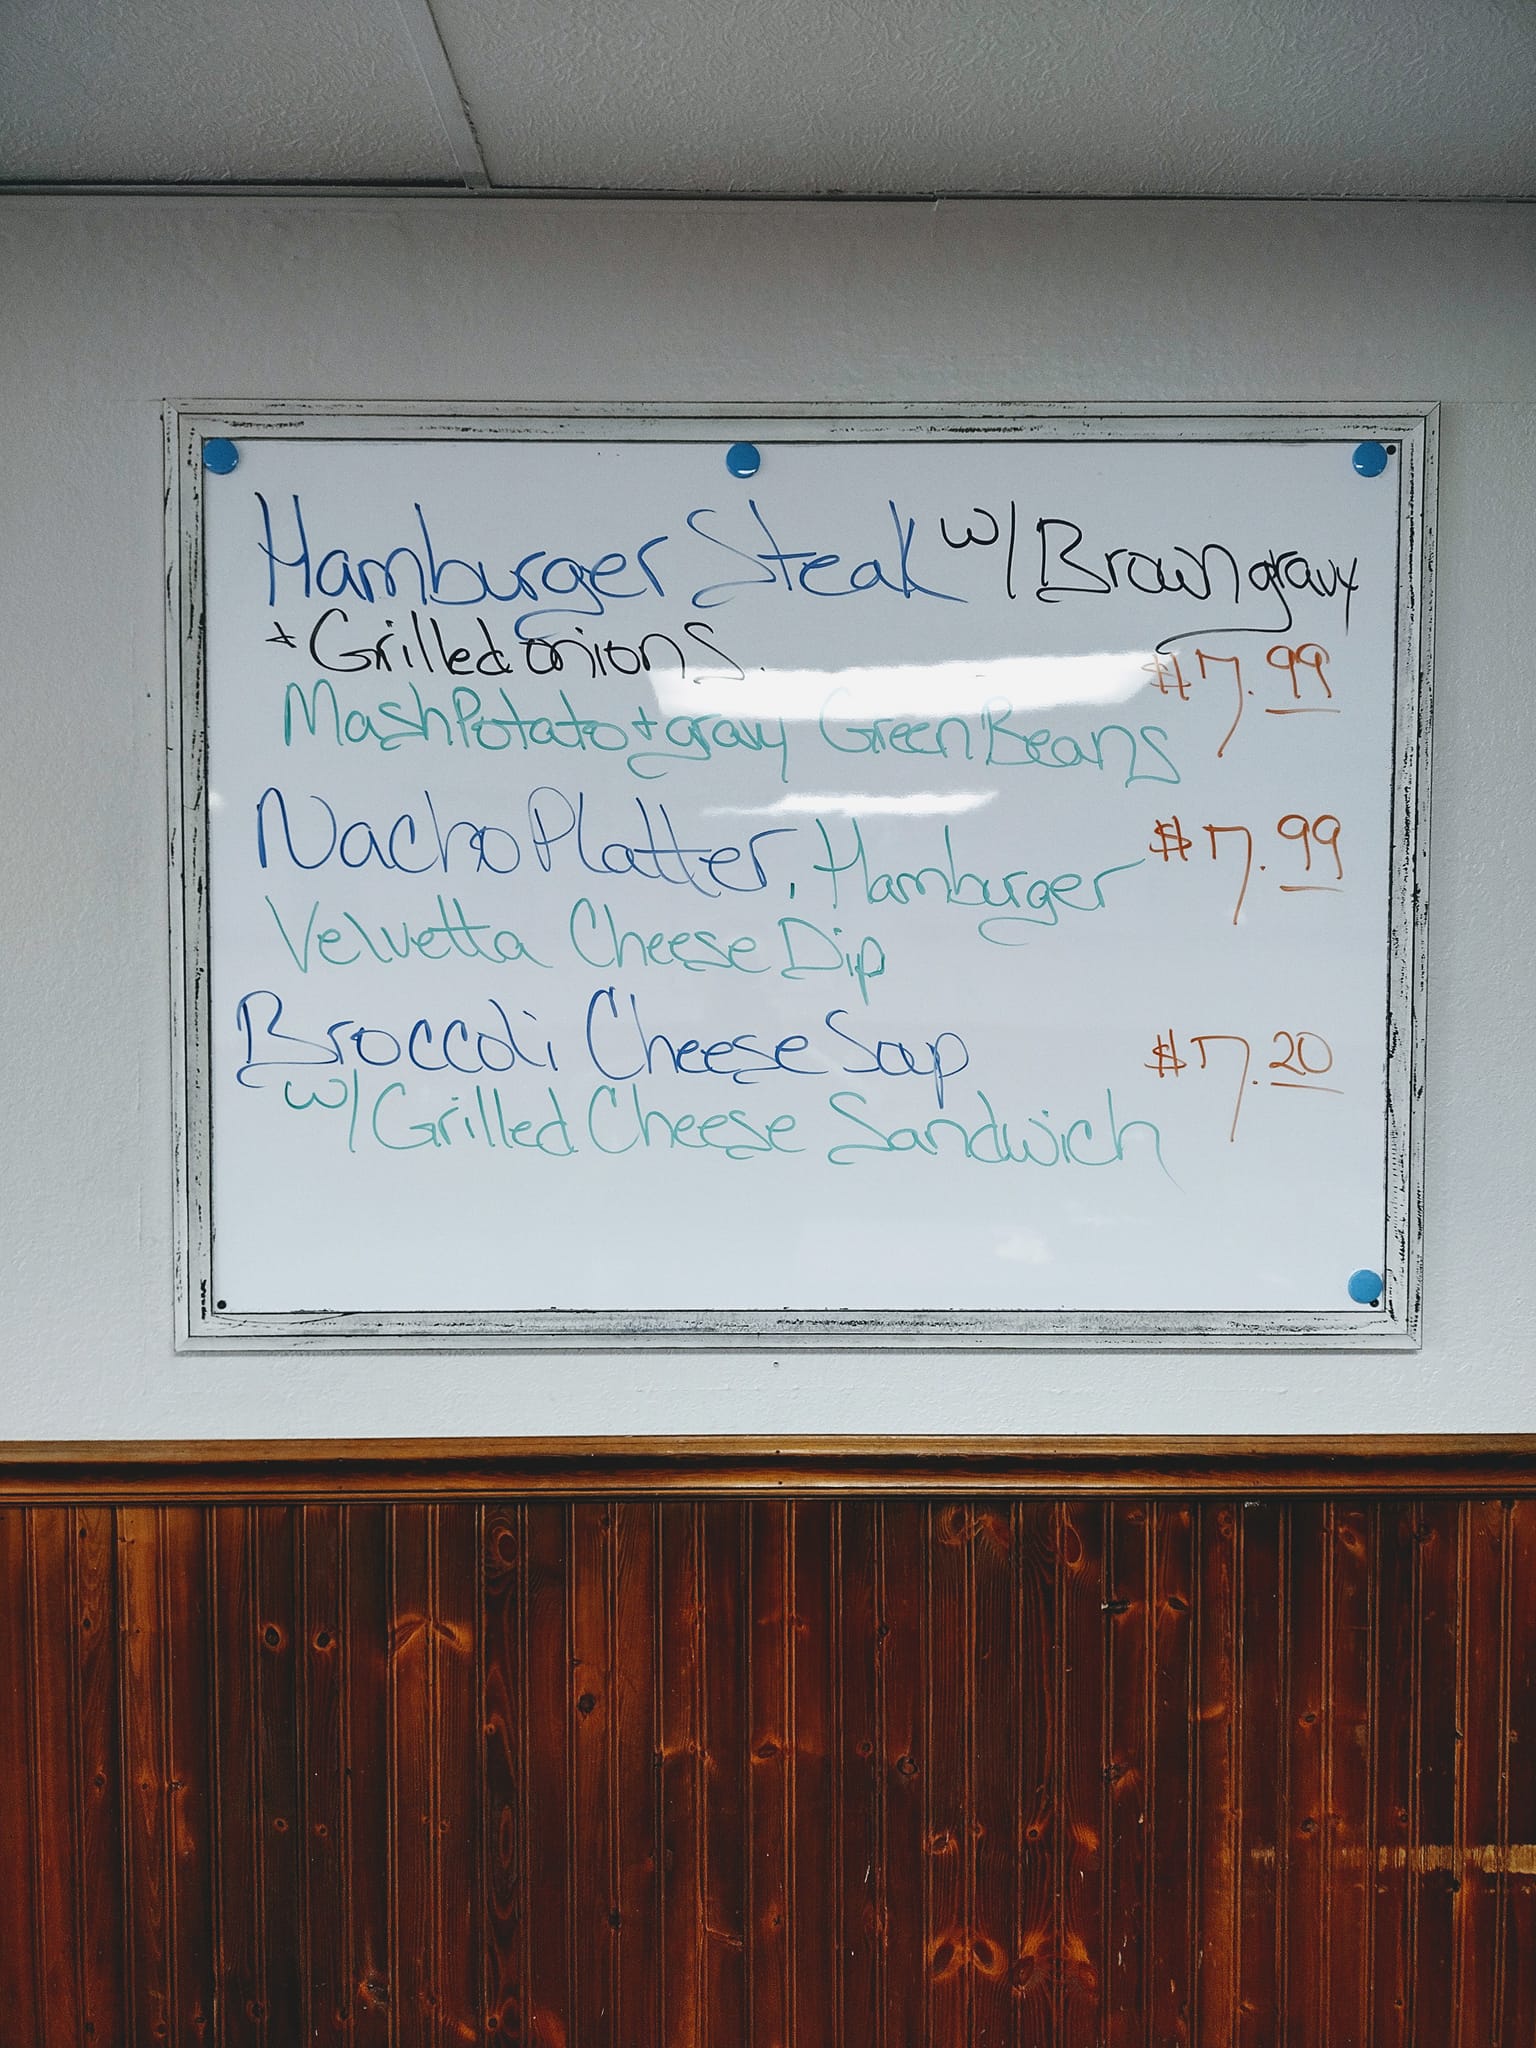 Hamburger Steak w/ Brown gravy
+ Grilled onions.
$7.99
Mash Potato + gravy Green Beans
Nacho Platter, Hamburger $7.99
Velvetta Cheese Dip
Broccoli Cheese Soup $7.20
w/ Grilled Cheese Sandwich